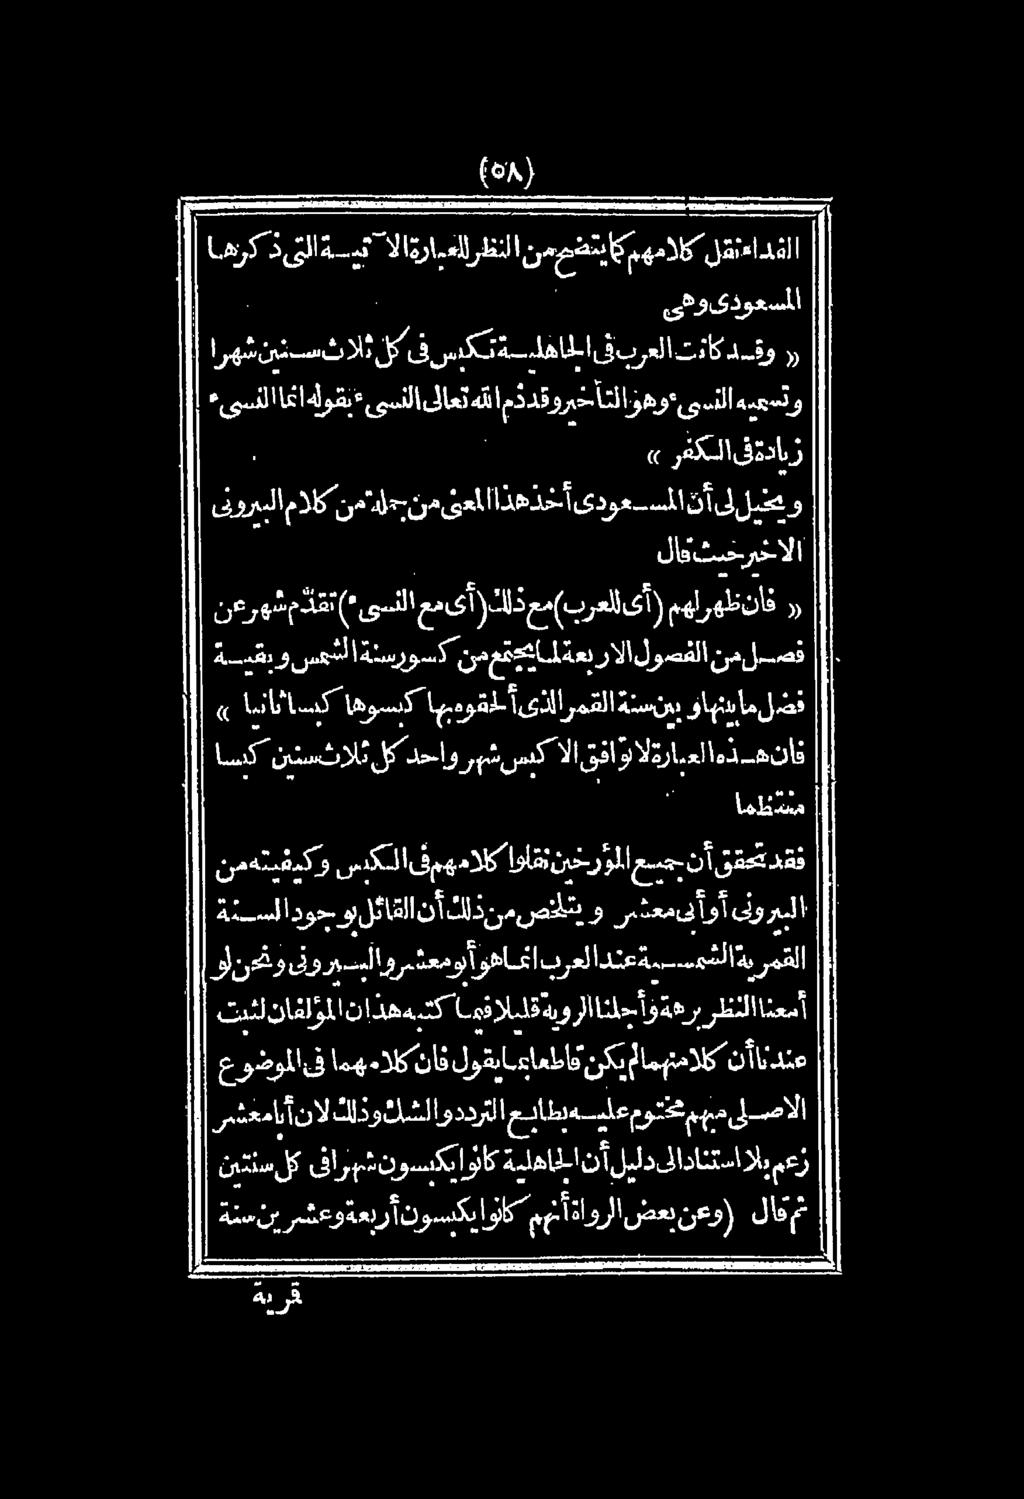 (٥٨)
الفداء نقل كلامهم كما يتضح من النظر للعبارة الآتيـــة التى ذكرها
المسعودى وهى
» وقــد كانت العرب فى الجاهليــة تكبس فى كل ثلاث سنين شهرا
وتسميه النسىء وهو التأخير وقد ذم الله تعالى النسىء بقوله انما النسىء
زيادة فى الكفر «
ويخيل لى أن المســعودى أخذ هذا المعنى من جملة من كلام البيرونى
الاخير حيث قال
» فان ظهر لهم (أى للعرب) مع ذلك (أى مع النسىء) تقدّم شهر عن
فصــل من الفصول الاربعة لما يجتمع من كسور سنة الشمس وبقيــة
فضل ما بينها وبين سنة القمر الذى ألحقوه بها كبسوها كبسا ثانيا «
فان هــذه العبارة لا توافق الا كبس شهر واحد كل ثلاث سنين كبسا
منتظما
فقد تحقق أن جميع المؤرخين نقلوا كلامهم فى الكبس وكيفيته من
البيرونى أو أبى معشر ويتلخص من ذلك أن القائل بوجود الســنة
القمرية الشمســية عند العرب انمــا هو أبو معشر والبــيرونى ونحن لو
أمعنا النظر برهة وأجلنا الروية قليلا فيمــا كتبه هذان المؤلفان لثبت
عندنا أن كلا منهما لم يكن قاطعا بمــا يقول فان كلامهما فى الموضوع
الاصــلى مبهم مختوم عليــه بطابع التردد والشك وذلك لان أبا معشر
زعم بلا استناد الى دليل أن الجاهلية كانوا يكبسون شهرا فى كل سنتين
ثم قال (وعن بعض الرواة أنهم كانوا يكبسون أربعة وعشرين سنة
قرية